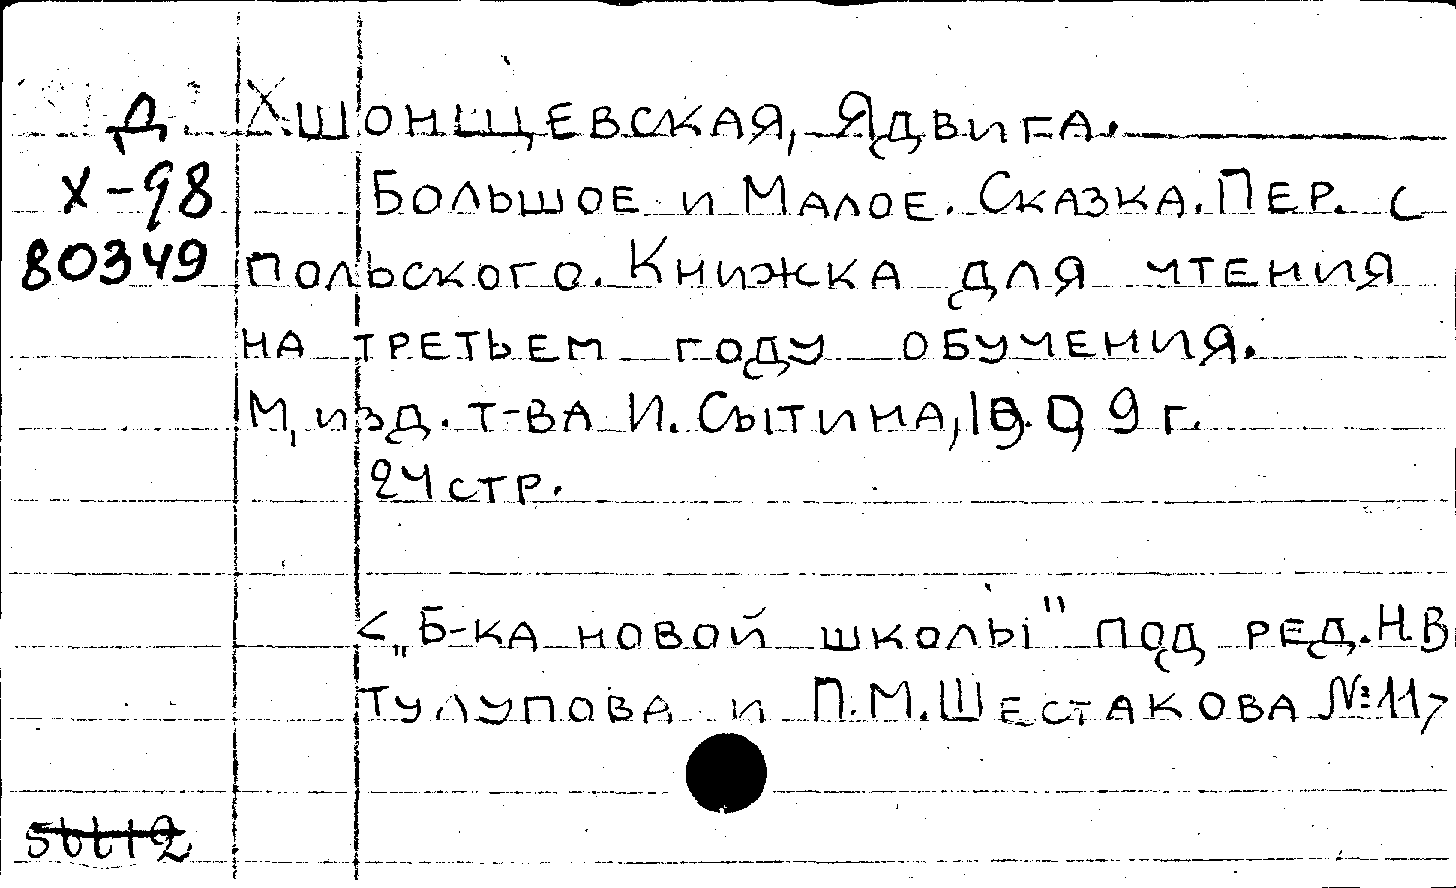 Д Хшонщевская, Ядвига.
Х-98 Большое и Малое. Сказка. Пер. с
80349 польского. Книжка для чтения
на третьем году обучения.
М, изд. т-ва И. Сытина, 1909 г.
24 стр.
<„Б-ка новой школы" под ред. Н.В
Тулупова и П.М. Шестакова № 11>